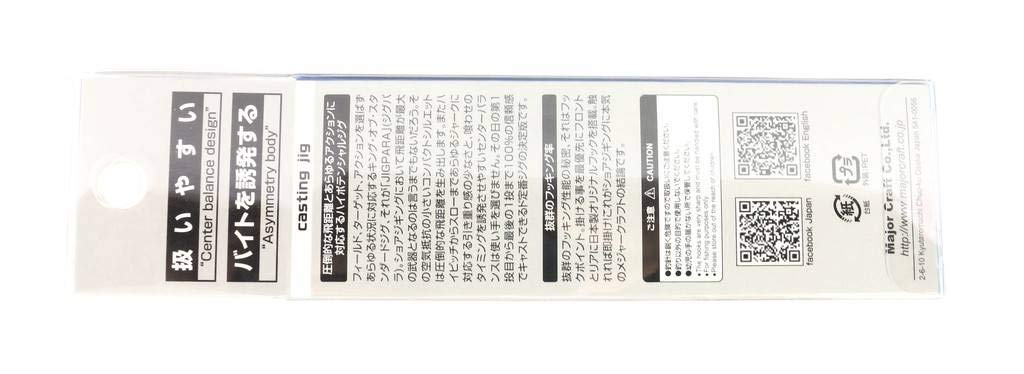 扱いやすい
"Center balance design"
バイトを誘発する
"Asymmetry body"
casting jig
圧倒的な飛距離とあらゆるアクションに
対応するハイポテンシャルジグ
フィールド、ターゲット、アクションを選ばず
あらゆる状況に対応するキング・オブ・スタ
ンダードジグ、それが「JIGPARA」(ジグパ
ラ)。ショアジギングにおいて飛距離が最大
の武器となるのは言うまでもないだろう。そ
の空気抵抗の小さいコンパクトシルエット
は圧倒的な飛距離を生み出します。またハ
イピッチからスローまであらゆるジャークに
対応する引き重り感の少なさと、喰わせの
タイミングを誘発させやすいセンターバラ
ンスは使い手を選びません。その日の第1
投目から最後の1投まで100%の信頼感
でキャストできるド定番ジグの決定版です。
抜群のフッキング率
抜群のフッキング性能の秘密、それはフッ
クポイント。掛ける事を最優先にフロント
とリアに日本製オリジナルフックを搭載。触
れれば即掛け!これがショアジギングに本気
のメジャークラフトの結論です。
ご注意 CAUTION
●釣針は鋭く危険ですので取扱いにご注意ください。
●釣り以外の目的で使用しないでください。
●幼児の手の届かない所で保管してください。
●The hooks are very sharp and must be handled with care.
●For fishing purposes only.
●Please store out of the reach of children.
facebook Japan
facebook English
紙
台紙
プラ
外装:PET
Major Craft Co.,Ltd.
http://www.majorcraft.co.jp